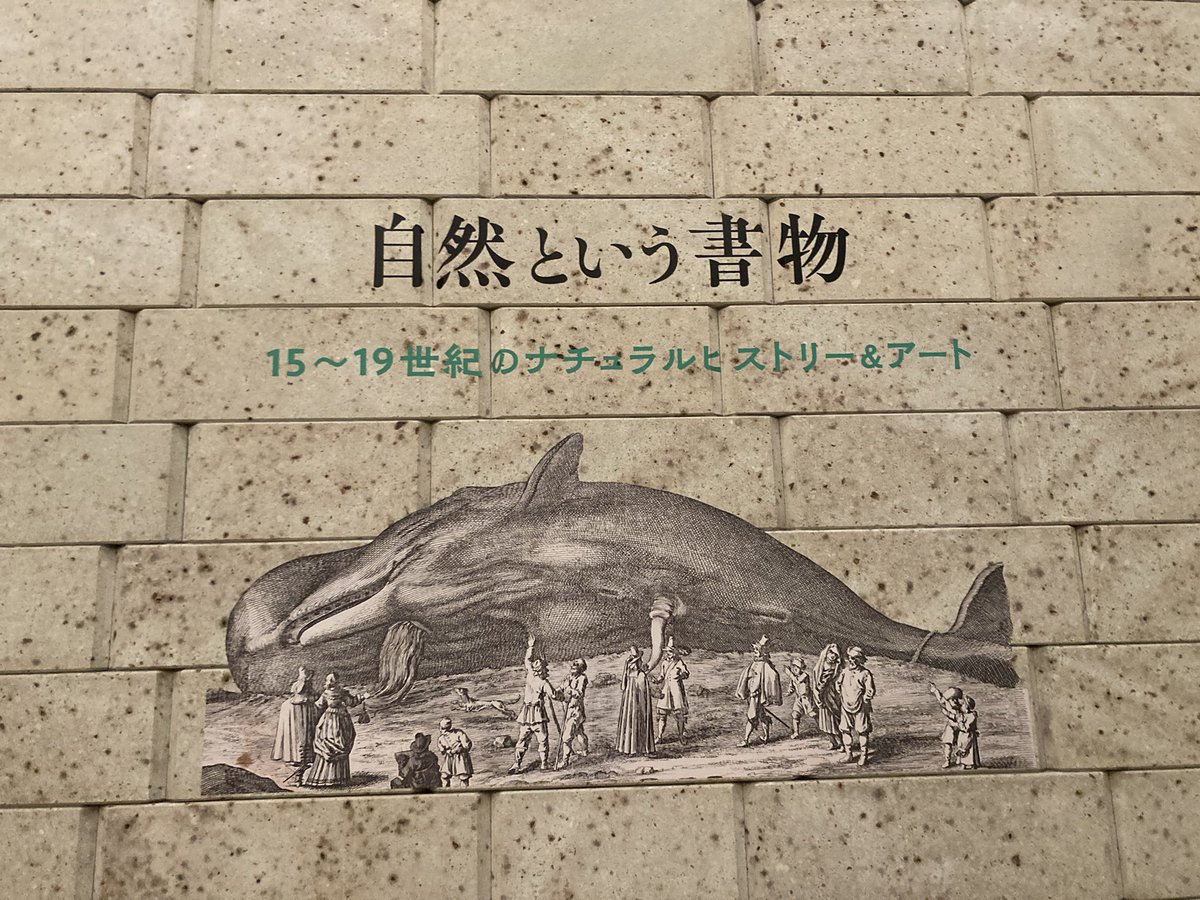 自然という書物
15～19世紀のナチュラルヒストリー&アート